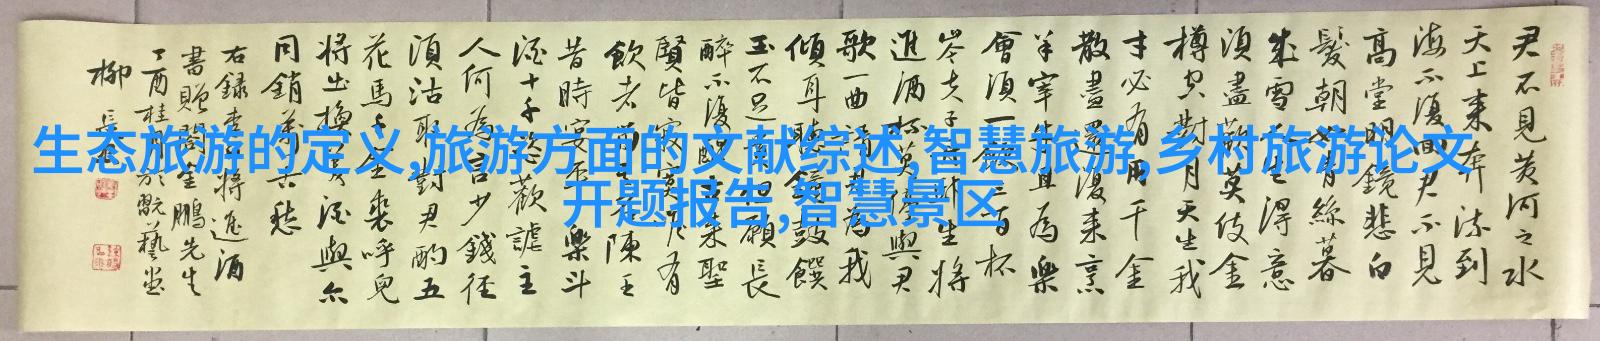 生态旅游的定义,旅游方面的文献综述,智慧旅游,乡村旅游论文
开题报告,智慧景区
君不見黄河之水
天上来奔流到
海不復回君不見
高堂明鏡悲白
髮朝如青絲暮
成雪人生得意
須盡歡莫使金
樽空對月天生我
才必有用千金
散盡還復来烹
羊宰牛且為樂
會須一飲三百杯
岑夫子丹丘生將
進酒杯莫停與君
歌一曲請君為我
傾耳聽鐘鼓饌
玉不足貴但願長
醉不復醒古来聖
賢皆寂寞惟有
飲者留其名陳王
昔時宴平樂斗
酒十千恣歡謔主
人何為言少錢径
須沽取對君酌五
花馬千金裘呼兒
将出換美酒與尔
同銷萬古愁
右録李白將進酒
書贈鵬先生
丁酉桂月於翫藝堂
柳